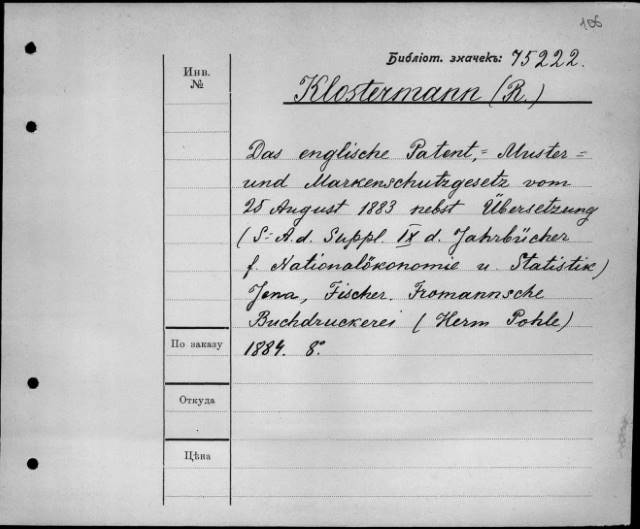 106
Библіот. значекъ: 75222.
Инв.
№
Klostermann (R.)
Das englische Patent,= Muster=
und Markenschutzgesetz vom
25 August 1883 nebst Übersetzung
(S.=A. d. Suppl. IX d. Jahrbücher
f. Nationalökonomie u. Statistik)
Jena, Fischer. Fromannsche
Buchdruckerei (Herm Pohle)
По заказу
1884. 8°.
Откуда
Цѣна